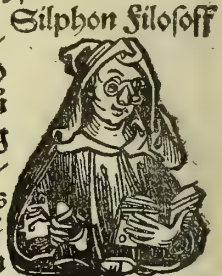 Silphon Filoſoff